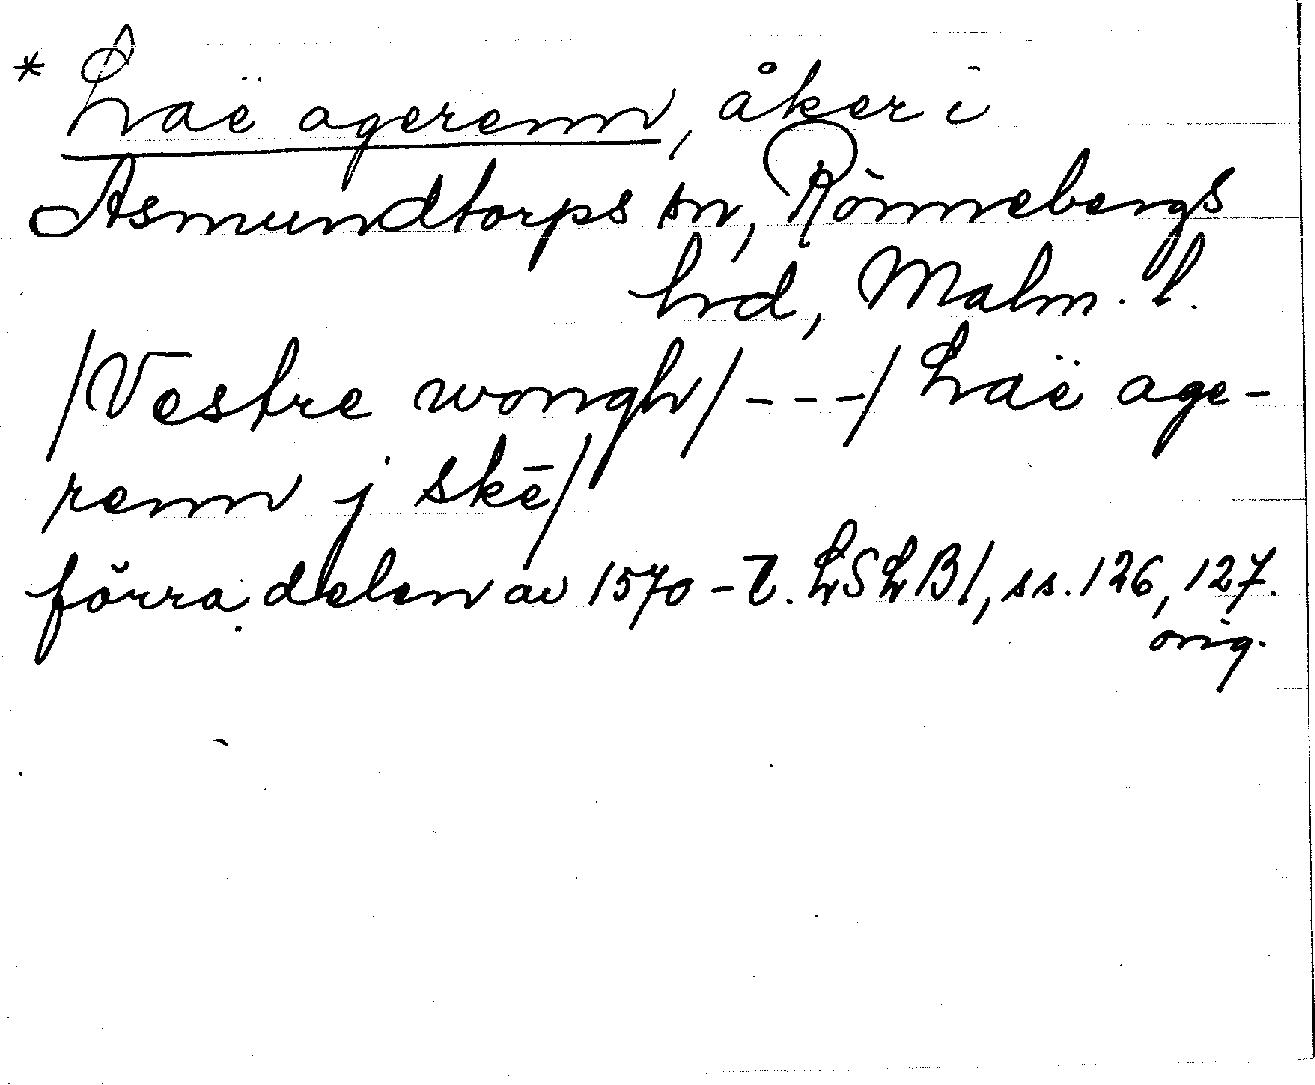 * Laë agerenn, åker i
Asmundtorps sn, Rönnebergs
hrd, Malm. l.
/Vestre wongh/ - - -/ Laë age-
renn j skē/
förra delen av 1570-t. LSLB1, ss. 126, 127.
orig.